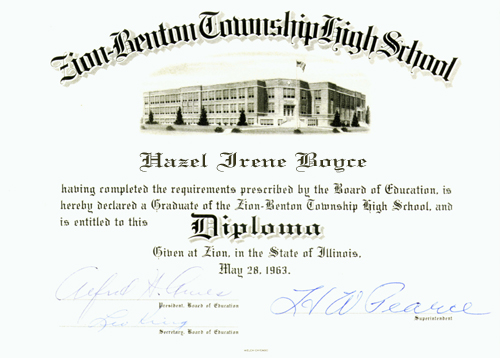 Zion-Benton Township High School
Hazel Irene Boyce
having completed the requirements prescribed by the Board of Education, is
hereby declared a Graduate of the Zion-Benton Township High School, and
is entitled to this Diploma
Given at Zion, in the State of Illinois,
May 28, 1963.
President, Board of Education
H W Pearce
Superintendent
Secretary, Board of Education